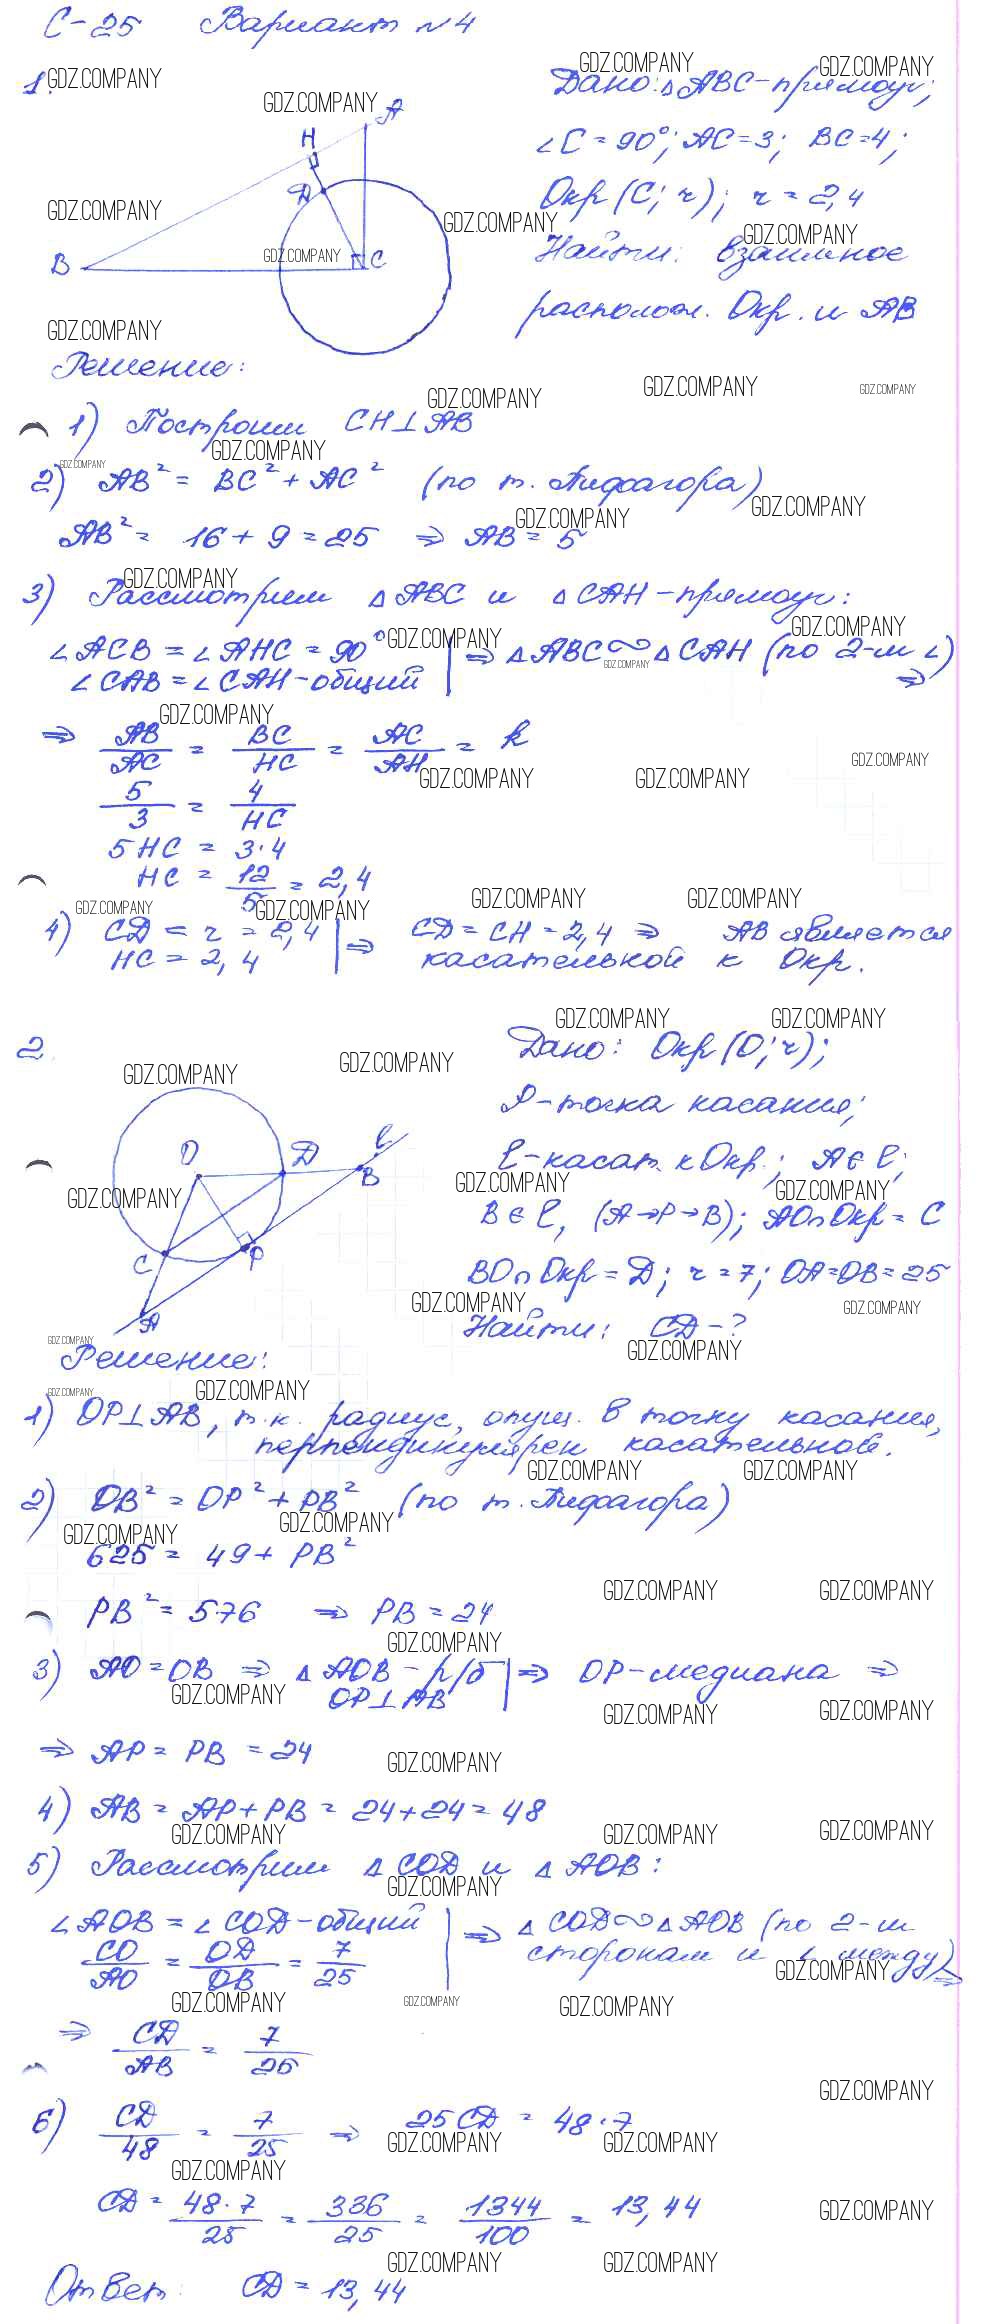 С-25 Вариант №4
1.
Дано: △ABC-прямоуг;
∠C = 90°; AC=3; BC=4;
Окр (C; r); r = 2,4
Найти: взаимное
располож. Окр. и AB
A
H
D
B
C
Решение:
1) Построим CH⊥AB
2) AB² = BC² + AC² (по т. Пифагора)
AB² = 16 + 9 = 25 ⇒ AB = 5
3) Рассмотрим △ABC и △CAH-прямоуг:
∠ACB = ∠AHC = 90° | ⇒ △ABC∾△CAH (по 2-м ∠)
∠CAB = ∠CAH-общий ⇒
⇒ AB/AC = BC/HC = AC/AH = k
5/3 = 4/HC
5HC = 3·4
HC = 12/5 = 2,4
4) CD = r = 2,4 | ⇒ CD = CH = 2,4 ⇒ AB является
HC = 2,4 касательной к Окр.
2.
Дано: Окр (O; r);
P-точка касания;
ℓ-касат. к Окр.; A∈ℓ;
B∈ℓ, (A→P→B); AO∩Окр = C
BO∩Окр = D; r = 7; OA=OB=25
Найти: CD-?
O
D
ℓ
B
C
P
A
Решение:
1) OP⊥AB, т.к. радиус, опущ. в точку касания,
перпендикулярен касательной.
2) OB² = OP² + PB² (по т. Пифагора)
625 = 49 + PB²
PB² = 576 ⇒ PB = 24
3) AO = OB ⇒ △AOB - р/б | ⇒ OP-медиана ⇒
OP⊥AB
⇒ AP = PB = 24
4) AB = AP + PB = 24+24 = 48
5) Рассмотрим △COD и △AOB:
∠AOB = ∠COD-общий | ⇒ △COD∾△AOB (по 2-м
CO/AO = OD/OB = 7/25 сторонам и ∠ между) ⇒
⇒ CD/AB = 7/25
6) CD/48 = 7/25 ⇒ 25CD = 48·7
CD = 48·7/25 = 336/25 = 1344/100 = 13,44
Ответ: CD = 13,44